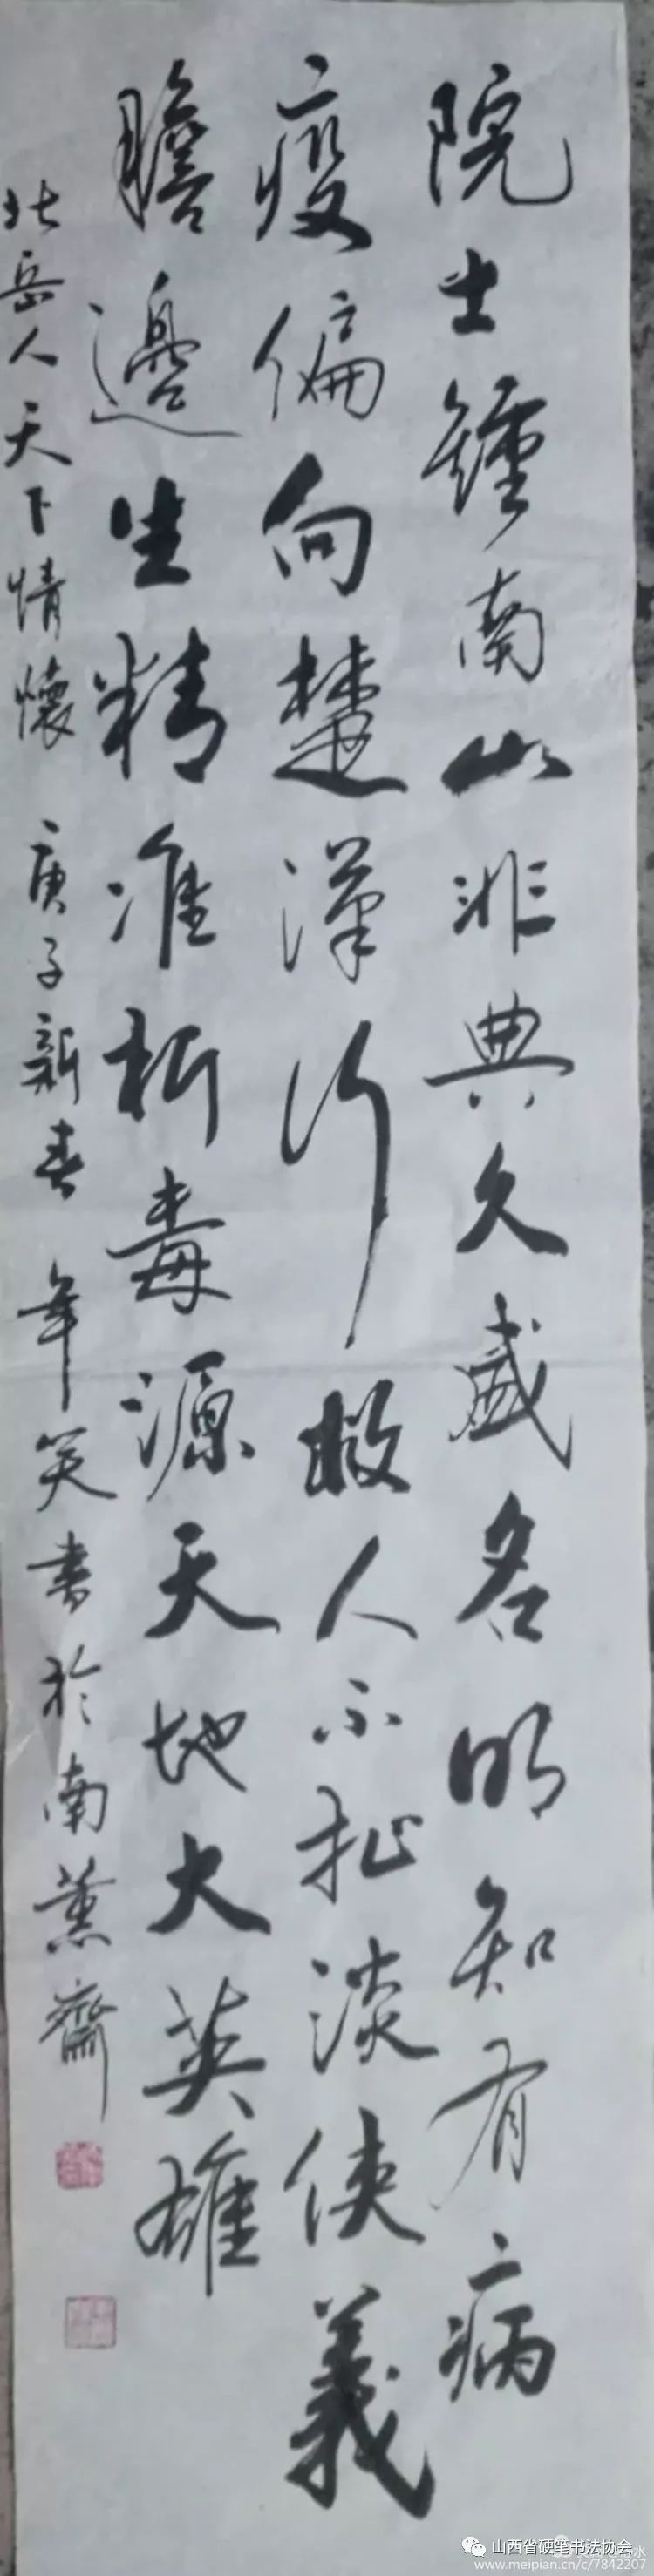 院士鍾南山非典久盛名明知有病
疫偏向楚漢行救人不扯淡俠義
膽邊生精准析毒源天地大英雄
北岳人天下情懷 庚子新春 年笑書於南薰齋
山西省硬笔书法协会
www.meipian.cn/c/7842207